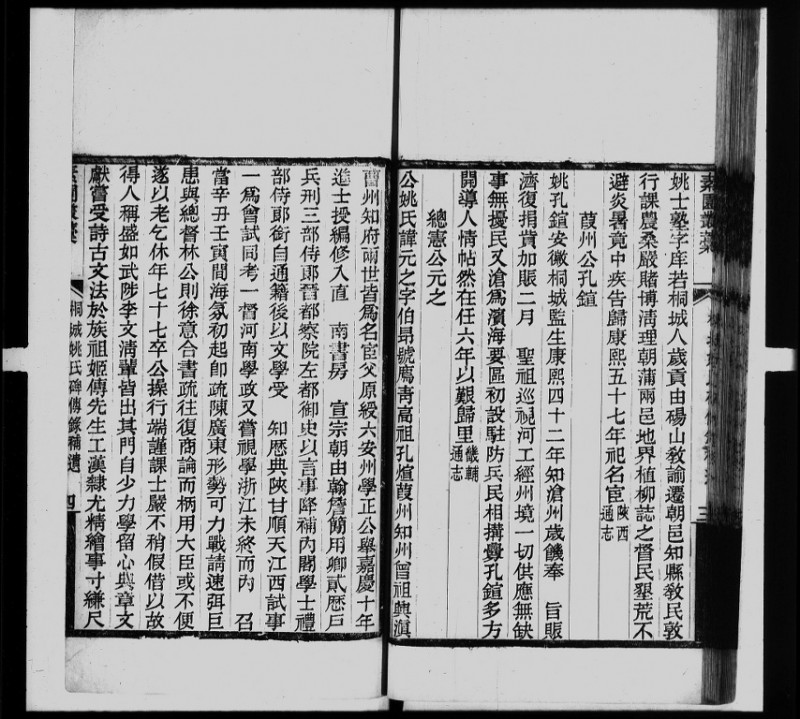 姚士塾字庠若桐城人歲貢由碭山敎諭遷朝邑知縣敎民敦
行課農桑嚴賭博淸理朝蒲兩邑地界植柳誌之督民墾荒不
避炎暑竟中疾吿歸康熙五十七年祀名宦陝西通志
葭州公孔鍹
姚孔鍹安徽桐城監生康熙四十二年知滄州歲饑奉 旨賑
濟復捐貲加賑二月 聖祖巡視河工經州境一切供應無缺
事無擾民又滄爲濱海要區初設駐防兵民相搆釁孔鍹多方
開導人情帖然在任六年以艱歸里畿輔通志
總憲公元之
公姚氏諱元之字伯昂號薦靑高祖孔鍹葭州知州曾祖興滇
州知府兩世皆爲名宦父原綬六安州學正公舉嘉慶十年
進士授編修入直 南書房 宣宗朝由翰詹簡用卿貳歷戶
兵刑三部侍郞晉都察院左都御史以言事降補內閣學士禮
部侍郞銜自通籍後以文學受 知歷典陝甘順天江西試事
一爲會試同考一督河南學政又嘗視學浙江未終而內 召
當辛丑壬寅間海氛初起卽疏陳廣東形勢可力戰請速弭巨
患與總督林公則徐意合書疏往復商論而柄用大臣或不便
遂以老乞休年七十七卒公操行端謹課士嚴不稍假借以故
得人稱盛如武陟李文淸輩皆出其門自少力學留心輿章文
獻嘗受詩古文法於族祖姬傳先生工漢隸尤精繪事寸縑尺
桐城姚氏碑傳錄補遺 四